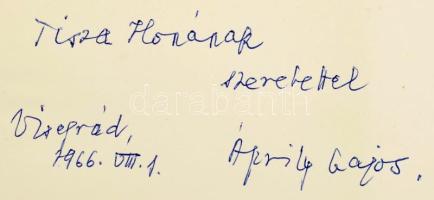 Tisza Ilonának
szeretettel
Visegrád,
1966. VIII. 1.
Áprily Lajos.
darabanth